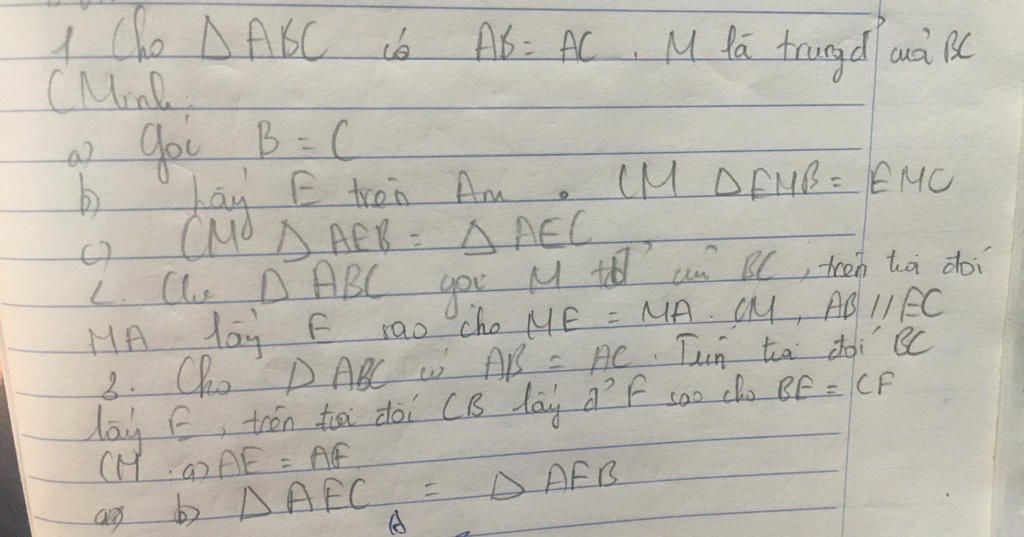 1 Cho Δ ABC có AB = AC . M là trung đ' của BC
CMinh:
a) Góc B = C
b) Lấy E trên Am . CM Δ EMB = EMC
c) CM Δ AEB = Δ AEC
2. Cho Δ ABC gọi M tđ' của BC, trên tia đối
MA lấy E sao cho ME = MA. CM, AB // EC
3. Cho Δ ABC có AB = AC. Trên tia đối BC
lấy E, trên tia đối CB lấy đ' F sao cho BE = CF
CM . a) AE = AF
b) Δ AEC = Δ AFB